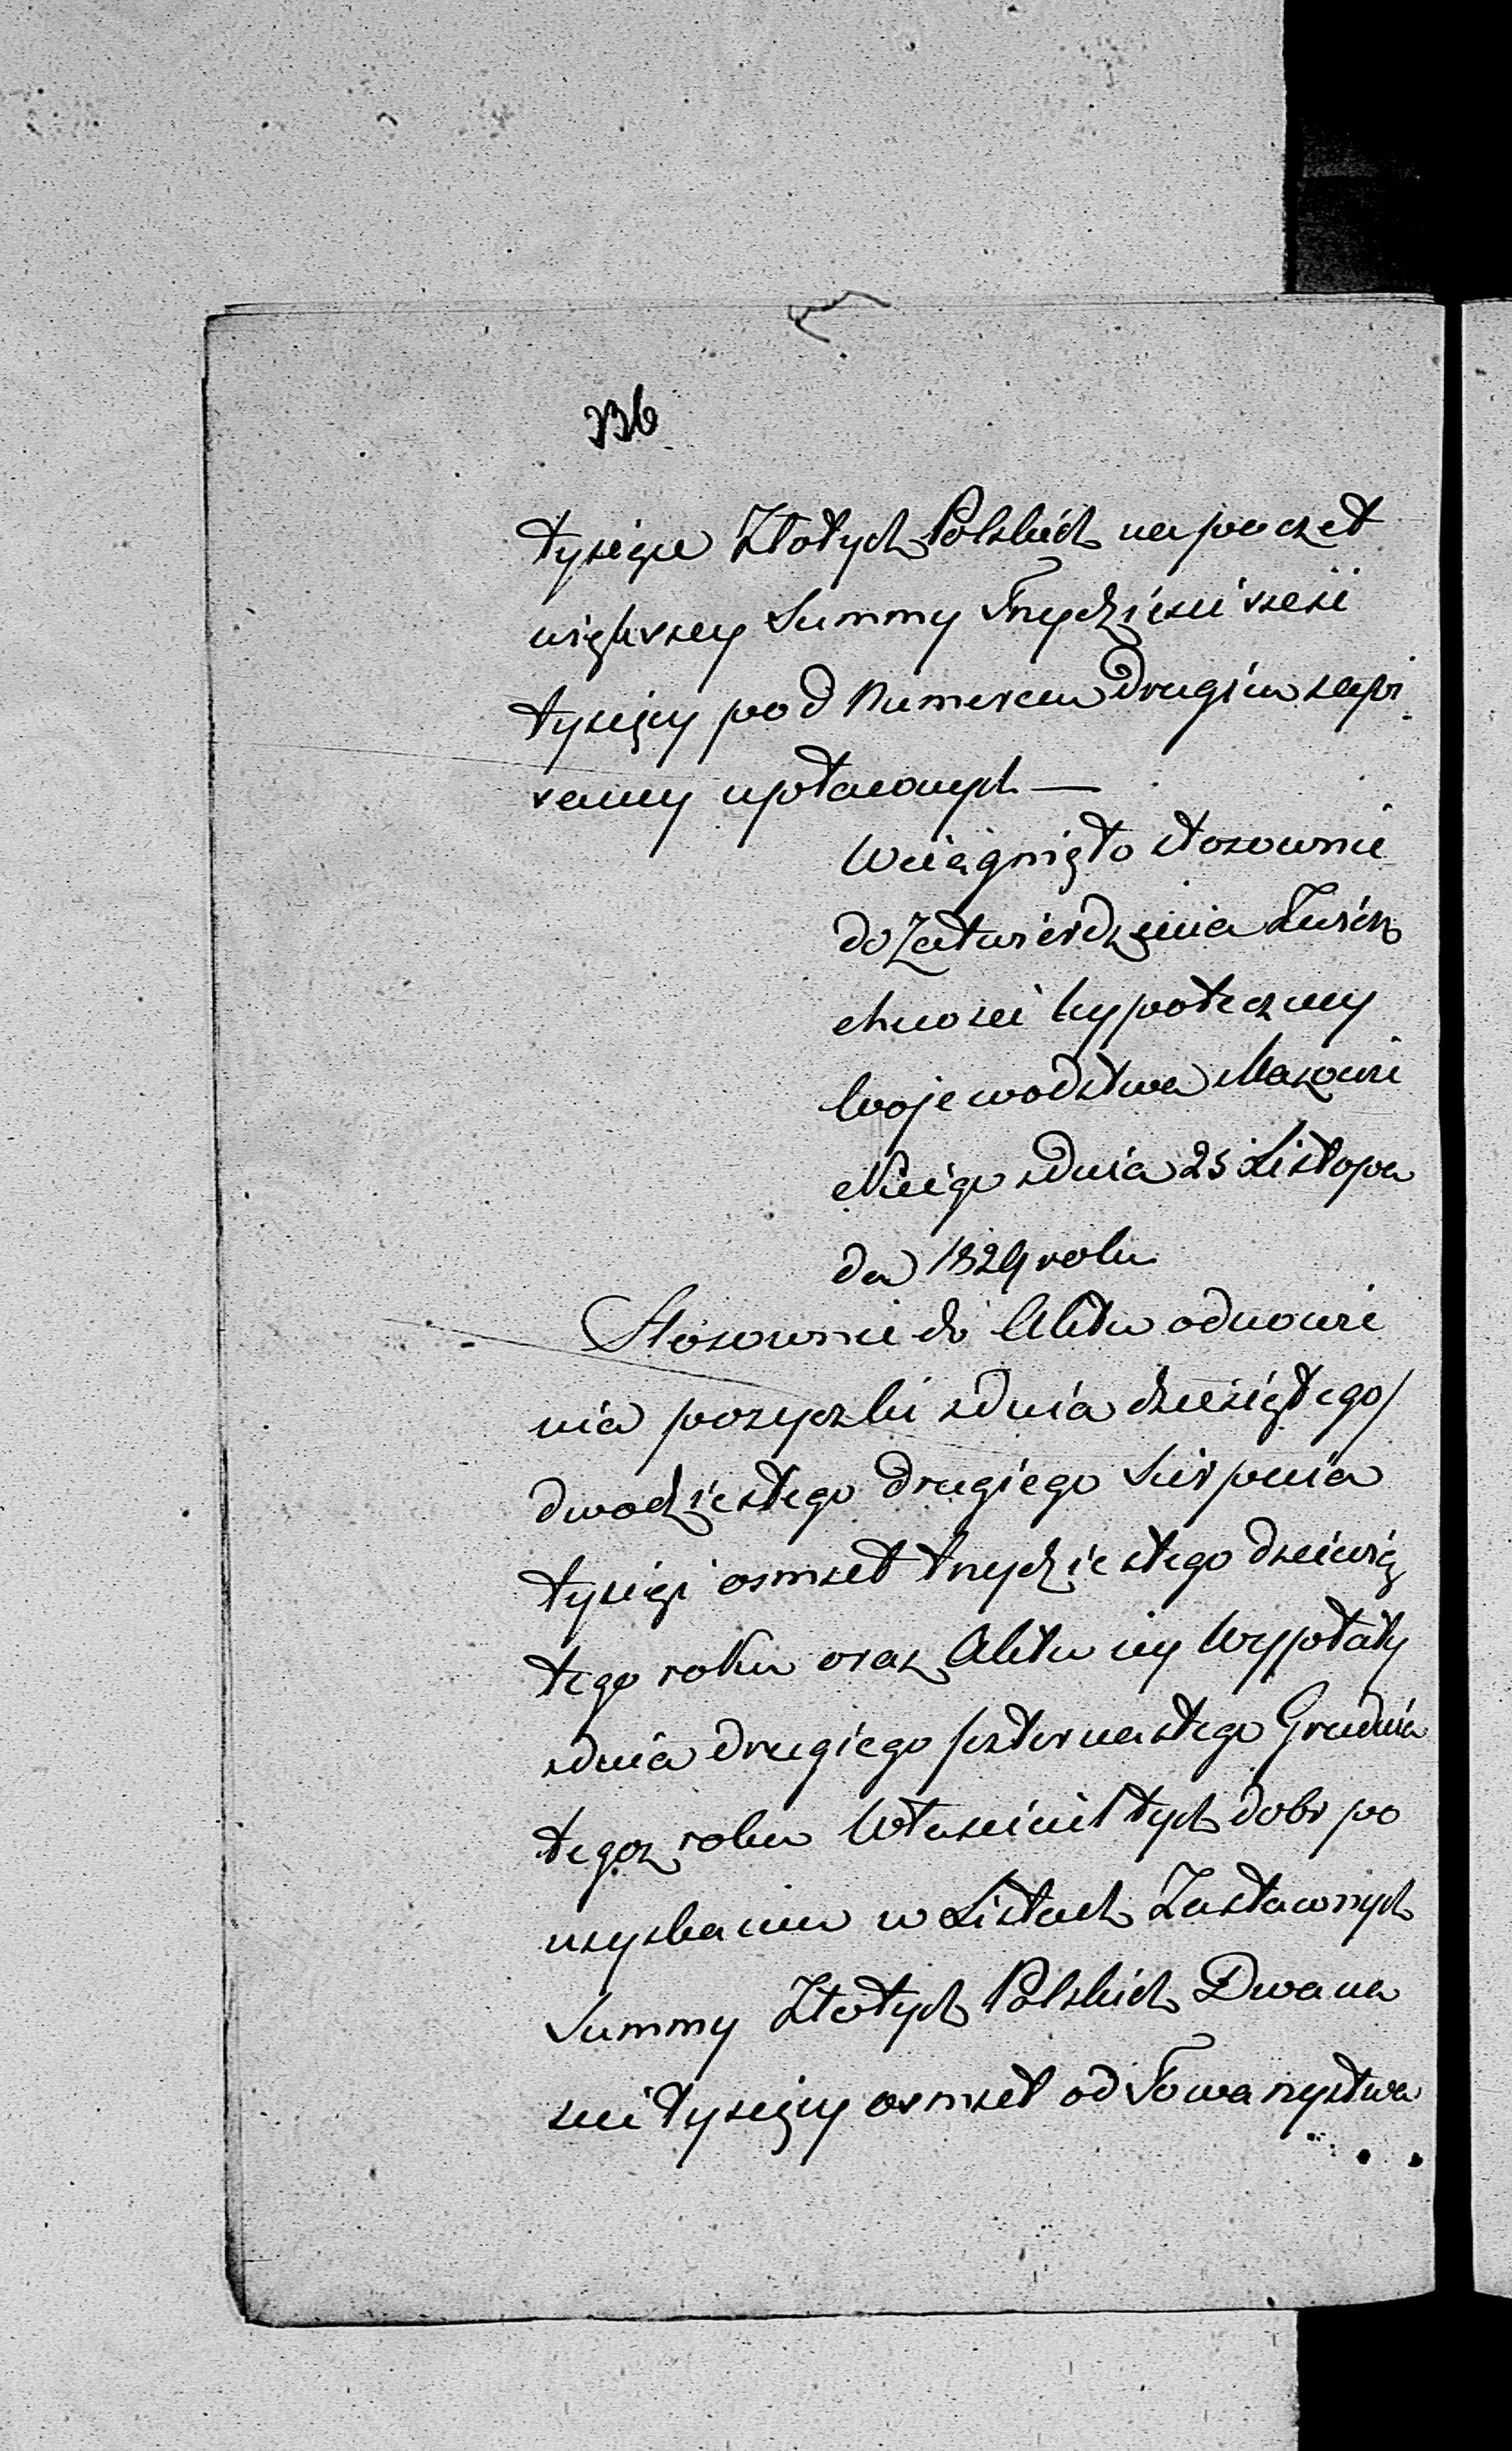 336
tysiące Złotych Polskich na poczet
większey Summy Trzydzieści sześć
tysięcy pod Numerem Drugim zapi
saney upłaconych —
Wciągnięto stosownie
do Zatwierdzenia Zwierz
chności hypoteczney
Wojewodztwa Mazowie
ckiego zdnia 25 Listopa
da 1829 roku
Stosownie do Aktu odnowie
nia pozyczki zdnia dziesiątego/
dwodziestego drugiego Sierpnia
tysiąc osmset trzydziestego dziewią
tego roku oraz Aktu iey Wypłaty
zdnia drugiego/czternastego Grudnia
tegoz roku Właściciel tych dobr po
uzyskaniu w Listach Zastawnych
Summy Złotych Polskich Dwana
ście tysięcy osmset od Towarzystwa